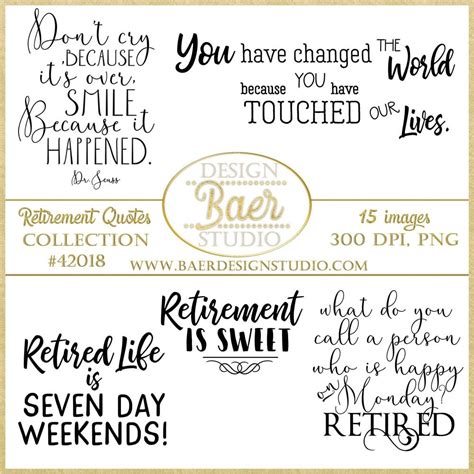 Don't cry
BECAUSE
it's over,
SMILE
Because it
HAPPENED.
Dr. Seuss
You have changed THE World
because YOU have
TOUCHED OUR Lives.
Retirement Quotes
COLLECTION
#42018
DESIGN
Baer
STUDIO
15 images
300 DPI, PNG
WWW.BAERDESIGNSTUDIO.COM
Retired Life
is
SEVEN DAY
WEEKENDS!
Retirement
IS SWEET
what do you
call a person
who is happy
on Monday?
RETIRED